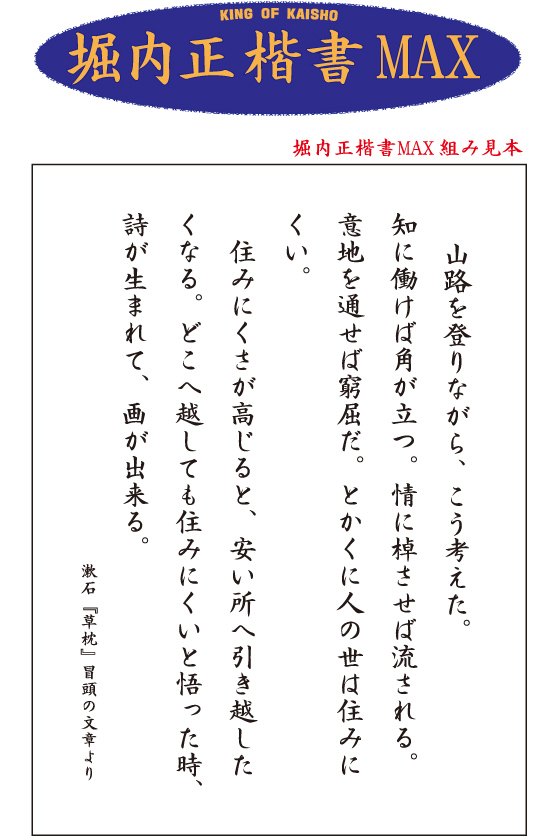 KING OF KAISHO
堀内正楷書MAX
堀内正楷書MAX 組み見本
山路を登りながら、こう考えた。
知に働けば角が立つ。情に棹させば流される。
意地を通せば窮屈だ。とかくに人の世は住みに
くい。
住みにくさが高じると、安い所へ引き越した
くなる。どこへ越しても住みにくいと悟った時、
詩が生まれて、画が出来る。
漱石『草枕』冒頭の文章より